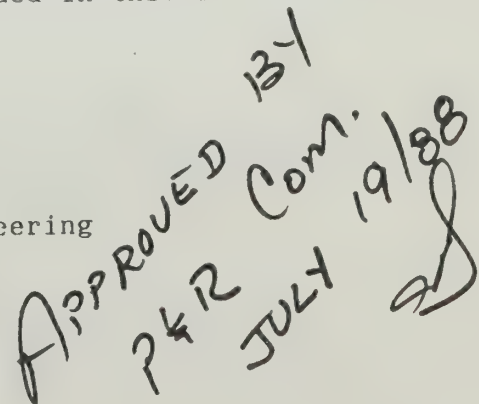 in this
eering
APPROVED BY
P & R Com.
JULY 19/88